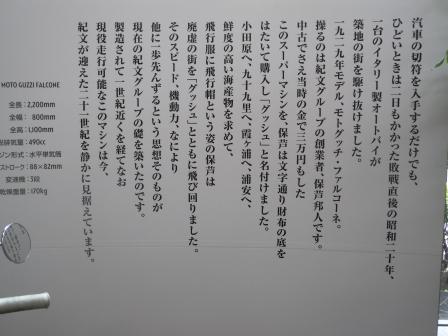 汽車の切符を入手するだけでも、
ひどいときは二日もかかった敗戦直後の昭和二十年、
一台のイタリー製オートバイが
築地の街を駆け抜けました。
一九二九年モデル、モトグッチ・ファルコーネ。
操るのは紀文グループの創業者、保芦邦人です。
中古でさえ当時の金で三万円もした
このスーパーマシンを、保芦は文字通り財布の底を
はたいて購入し「ダッシュ」と名付けました。
小田原へ、九十九里へ、霞ヶ浦へ、浦安へ、
鮮度の高い海産物を求めて、
飛行服に飛行帽という姿の保芦は
廃虚の街を「ダッシュ」とともに飛び回りました。
そのスピード、機動力、なにより
他に一歩先んずるという思想そのものが
現在の紀文グループの礎を築いたのです。
製造されて一世紀近くを経てなお
現役走行可能なこのマシンは今、
紀文が迎えた二十一世紀を静かに見据えています。
MOTO GUZZI FALCONE
全長：2,200mm
全幅： 800mm
全高：1,100mm
排気量：490cc
ジン形式：水平単気筒
ストローク：88×82mm
変速機：3段
乾燥重量：170kg